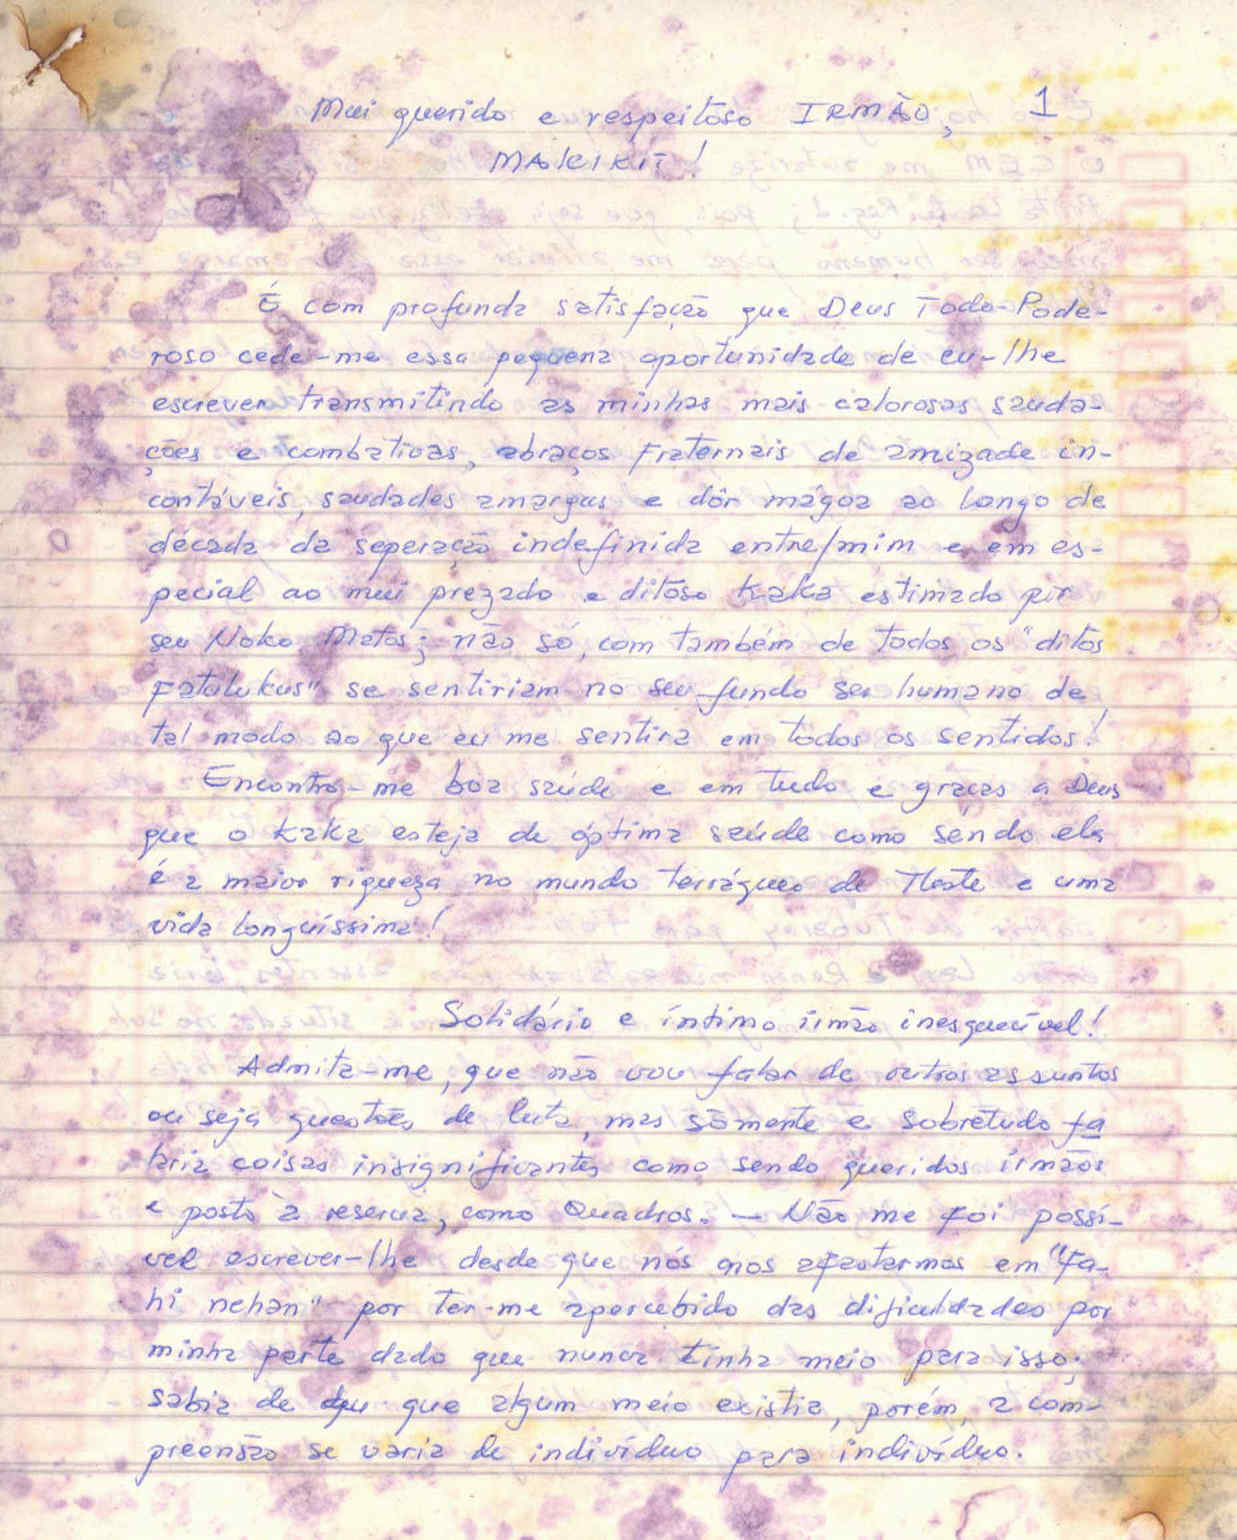 Mui querido e respeitôso IRMÃO, 1
MAKIKIT!
É com profunda satisfação que Deus Todo-Pode-
roso cede-me essa pequena oportunidade de eu-lhe
escrever transmitindo as minhas mais calorosas sauda-
ções e combativas, abraços fraternais de amizade in-
contáveis, saudades amargas e dôr mágoa ao longo de
década da seperação indefinida entre/mim e em es-
pecial ao mui prezado e ditôso Kaka estimado pir
seu Noko Matos; não só, com também de todos os "ditos
Fatulukus" se sentiriam no seu fundo ser humano de
tal modo ao que eu me sentira em todos os sentidos!
Encontro-me boa saúde e em tudo e graças a Deus
que o Kaka esteja de óptima saúde como sendo ela
é a maior riqueza no mundo terráqueo de Tleste e uma
vida longuíssima!
Solidário e íntimo irmão inesquecível!
Admita-me, que não vou falar de outros assuntos
ou seja questões de luta, mas sòmente e sobretudo fa
laria coisas insignificantes como sendo queridos irmãos
e posto à reserva, como Quadros. — Não me foi possí-
vel escrever-lhe desde que nós nos afastarmos em "Fa-
hi nehan" por ter-me apercebido das dificuldades por
minha parte dado que nunca tinha meio para isso;
sabia de que algum meio existia, porém, a com-
preensão se varia de indivíduo para indivíduo.